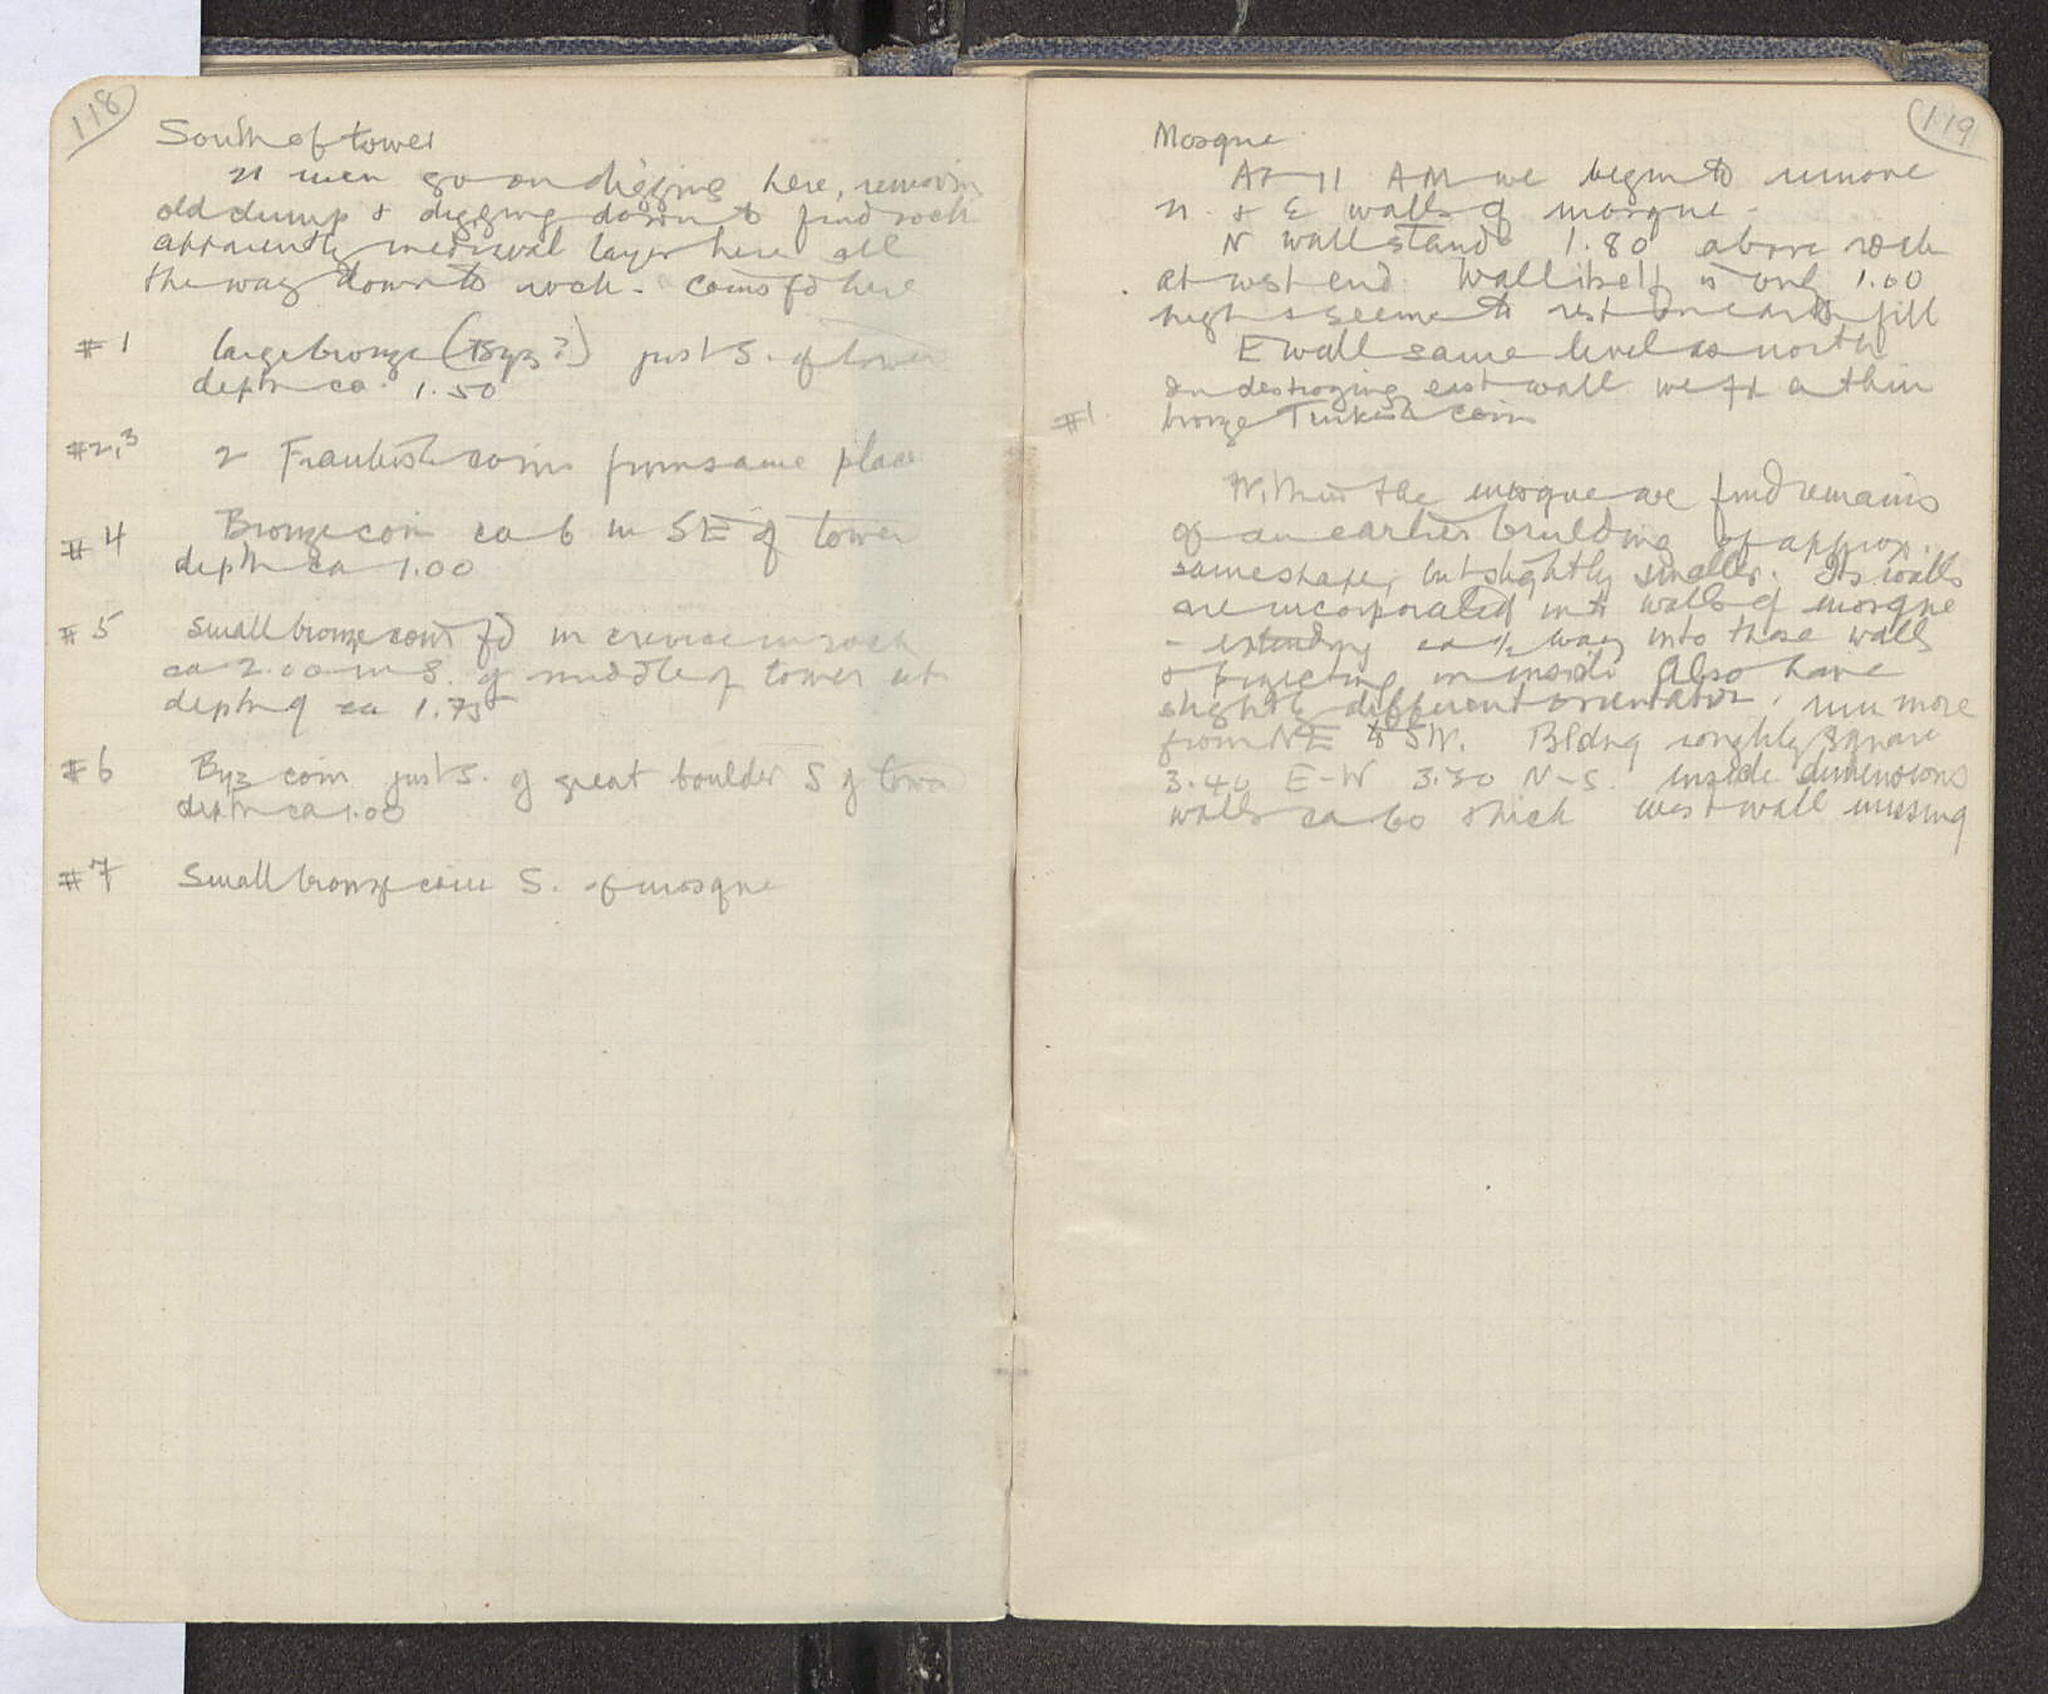 118
South of tower
21 men go on digging here, removing
old dump & digging down to find rock
apparently medieval layer here all
the way down to rock. Coins fd here
#1 large bronze (Byz?) just S. of tower
depth ca. 1.50
#2,3 2 Frankish coins from same place
#4 Bronze coin ca 6 m SE of tower
depth ca 1.00
#5 small bronze coin fd in crevice in rock
ca 2.00 m S. of middle of tower at
depth of ca 1.75
#6 Byz coin just S. of great boulder S of tower
depth ca 1.00
#7 Small bronze coin S. of mosque
119
Mosque
At 11 AM we begin to remove
N. & E walls of mosque.
N wall stands 1.80 above rock
at west end. Wall itself is only 1.00
high & seems to rest on earth fill
E wall same level as north
In destroying east wall we fd a thin
#1. bronze Turkish coin
Within the mosque we find remains
of an earlier building of approx.
same shape, but slightly smaller. Its walls
are incorporated into walls of mosque
- extending ca ½ way into those walls
& projecting on inside Also have
slightly different orientation, run more
from NE to SW. Bldng roughly square
3.40 E-W 3.30 N-S. inside dimensions
walls ca 60 thick west wall missing